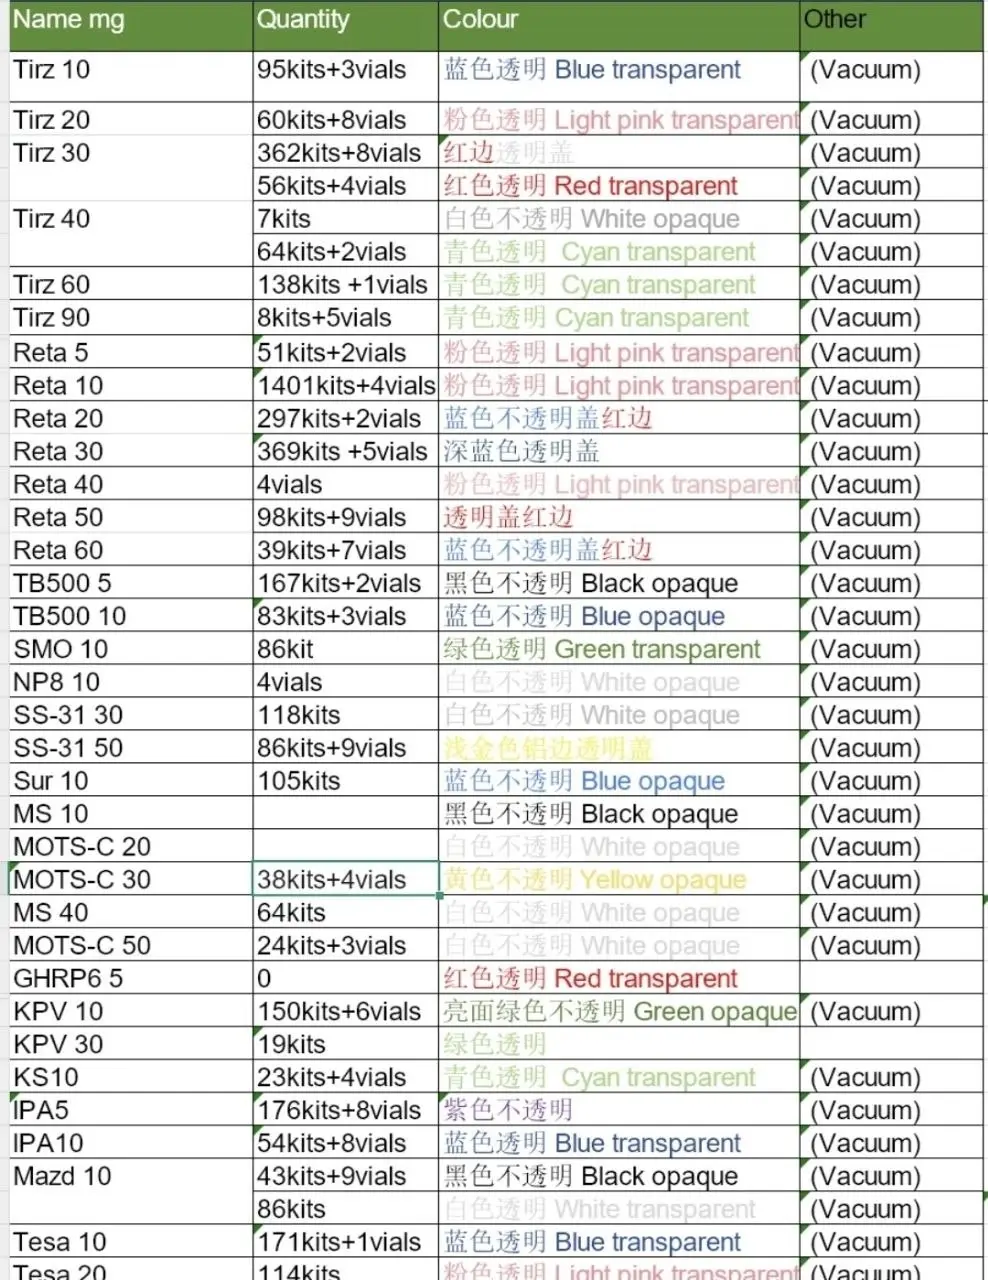 Name mg Quantity Colour Other
Tirz 10 95kits+3vials 蓝色透明 Blue transparent (Vacuum)
Tirz 20 60kits+8vials 粉色透明 Light pink transparent (Vacuum)
Tirz 30 362kits+8vials 红边透明盖 (Vacuum)
56kits+4vials 红色透明 Red transparent (Vacuum)
Tirz 40 7kits 白色不透明 White opaque (Vacuum)
64kits+2vials 青色透明 Cyan transparent (Vacuum)
Tirz 60 138kits +1vials 青色透明 Cyan transparent (Vacuum)
Tirz 90 8kits+5vials 青色透明 Cyan transparent (Vacuum)
Reta 5 51kits+2vials 粉色透明 Light pink transparent (Vacuum)
Reta 10 1401kits+4vials 粉色透明 Light pink transparent (Vacuum)
Reta 20 297kits+2vials 蓝色不透明盖红边 (Vacuum)
Reta 30 369kits +5vials 深蓝色透明盖 (Vacuum)
Reta 40 4vials 粉色透明 Light pink transparent (Vacuum)
Reta 50 98kits+9vials 透明盖红边 (Vacuum)
Reta 60 39kits+7vials 蓝色不透明盖红边 (Vacuum)
TB500 5 167kits+2vials 黑色不透明 Black opaque (Vacuum)
TB500 10 83kits+3vials 蓝色不透明 Blue opaque (Vacuum)
SMO 10 86kit 绿色透明 Green transparent (Vacuum)
NP8 10 4vials 白色不透明 White opaque (Vacuum)
SS-31 30 118kits 白色不透明 White opaque (Vacuum)
SS-31 50 86kits+9vials 浅金色铝边透明盖 (Vacuum)
Sur 10 105kits 蓝色不透明 Blue opaque (Vacuum)
MS 10 黑色不透明 Black opaque (Vacuum)
MOTS-C 20 白色不透明 White opaque (Vacuum)
MOTS-C 30 38kits+4vials 黄色不透明 Yellow opaque (Vacuum)
MS 40 64kits 白色不透明 White opaque (Vacuum)
MOTS-C 50 24kits+3vials 白色不透明 White opaque (Vacuum)
GHRP6 5 0 红色透明 Red transparent
KPV 10 150kits+6vials 亮面绿色不透明 Green opaque (Vacuum)
KPV 30 19kits 绿色透明
KS10 23kits+4vials 青色透明 Cyan transparent (Vacuum)
IPA5 176kits+8vials 紫色不透明 (Vacuum)
IPA10 54kits+8vials 蓝色透明 Blue transparent (Vacuum)
Mazd 10 43kits+9vials 黑色不透明 Black opaque (Vacuum)
86kits 白色透明 White transparent (Vacuum)
Tesa 10 171kits+1vials 蓝色透明 Blue transparent (Vacuum)
Tesa 20 114kits 粉色透明 Light pink transparent (Vacuum)